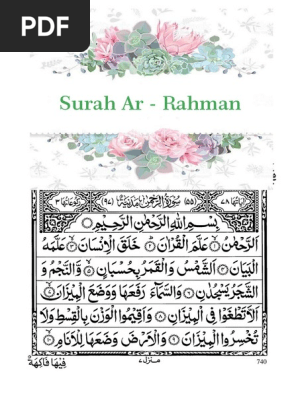 PDF
Surah Ar - Rahman
اٰیَاتُهَا ۷۸ (۵۵) سُوْرَةُ الرَّحْمٰنِ مَدَنِیَّةٌ (۹۷) رُكُوْعَاتُهَا ۳
بِسْمِ اللّٰهِ الرَّحْمٰنِ الرَّحِیْمِ
اَلرَّحْمٰنُ ۙ۱ عَلَّمَ الْقُرْاٰنَ ؕ۲ خَلَقَ الْاِنْسَانَ ۙ۳ عَلَّمَهُ
الْبَیَانَ ۴ اَلشَّمْسُ وَالْقَمَرُ بِحُسْبَانٍ ۪۵ وَّالنَّجْمُ وَ
الشَّجَرُ یَسْجُدٰنِ ۶ وَالسَّمَآءَ رَفَعَهَا وَوَضَعَ الْمِیْزَانَ ۙ۷
اَلَّا تَطْغَوْا فِی الْمِیْزَانِ ۸ وَاَقِیْمُوا الْوَزْنَ بِالْقِسْطِ وَلَا
تُخْسِرُوا الْمِیْزَانَ ۹ وَالْاَرْضَ وَضَعَهَا لِلْاَنَامِ ۙ۱۰
فِیْهَا فَاكِهَةٌ
منزل ۷
740